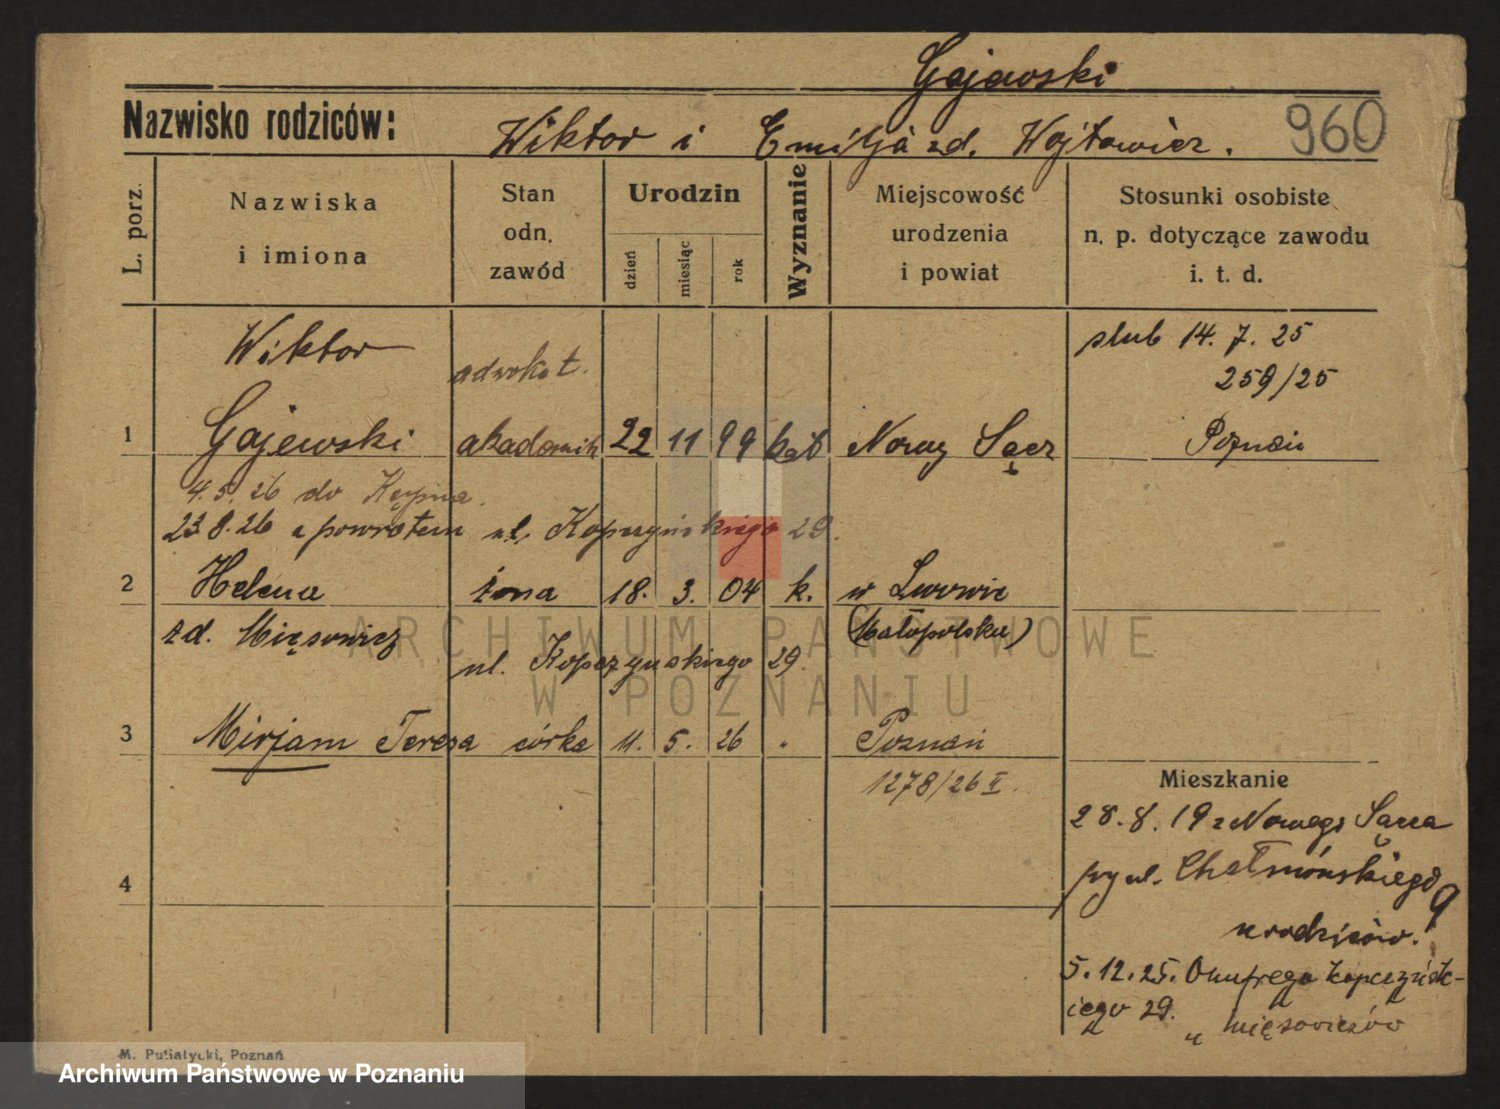 Gajewski
Nazwisko rodziców: Wiktor i Emilja zd. Wojtowicz. 960
L. porz.
Nazwiska i imiona
Stan odn. zawód
Urodzin
dzień miesiąc rok
Wyznanie
Miejscowość urodzenia i powiat
Stosunki osobiste n. p. dotyczące zawodu i. t. d.
Wiktor adwokat. ślub 14. 7. 25
259/25
1 Gajewski akademik 22 11 99 kat Nowy Sącz Poznań
4.5.26 do Kępna.
23.8.26 z powrotem ul. Kopczyńskiego 29.
2 Helena żona 18. 3. 04 k. w Lwowie
zd. Mięsowicz (Małopolska)
ul. Kopczyńskiego 29.
ARCHIWUM PAŃSTWOWE
W POZNANIU
3 Mirjam Teresa córka 11. 5. 26 " Poznań
1278/26 II.
Mieszkanie
28.8.19 z Nowego Sącza
przy ul. Chełmońskiego 9
u rodziców.
5.12.25. Onufrego Kopczyńsk-
iego 29.
u Mięsowiczów
4
M. Putiatycki, Poznań
Archiwum Państwowe w Poznaniu